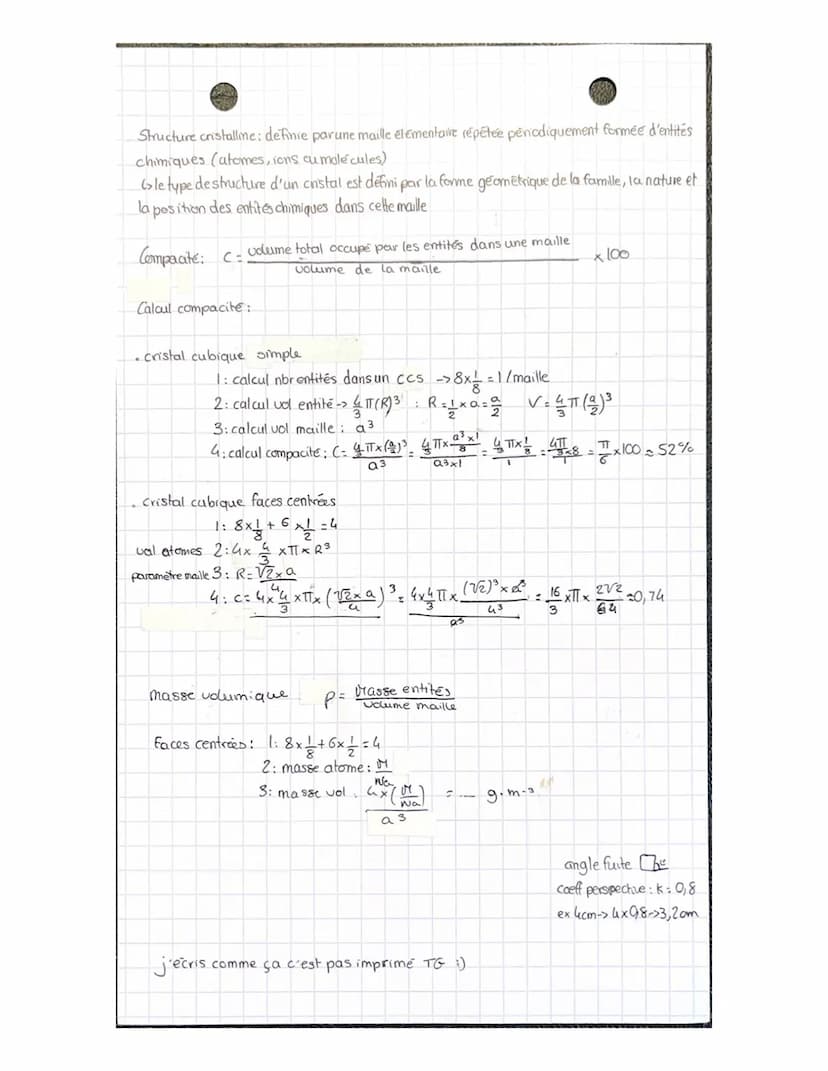 Structure cristalline : définie par une maille élémentaire répétée périodiquement formée d'entités
chimiques (atomes, ions ou molécules)
↳ le type de structure d'un cristal est défini par la forme géométrique de la famille, la nature et
la position des entités chimiques dans cette maille
Compacité : C = volume total occupé par les entités dans une maille / volume de la maille × 100
Calcul compacité :
. cristal cubique simple
1 : calcul nbr entités dans un ccs -> 8×1/8 = 1/maille
2 : calcul vol entité -> 4/3 π(R)³ : R = 1/2 × a = a/2 V = 4/3 π (a/2)³
3 : calcul vol maille : a³
4 : calcul compacité : C = (4/3 π × (a/2)³)/a³ = (4/3 π × (a³×1)/8)/(a³×1) = (4/3 π × 1/8)/1 = (4π/(3×8))/1 = π/6 × 100 ≈ 52%
. cristal cubique faces centrées
1 : 8×1/8 + 6×1/2 = 4
vol atomes 2 : 4× 4/3 × π × R³
paramètre maille 3 : R = (√2 × a)/4
4 : C = 4× 4/3 × π × ((√2 × a)/4)³ = (4×4/3 π × ((√2)³ × a³)/4³)/a³ = 16/3 × π × 2√2/64 ≈ 0,74
masse volumique ρ = Masse entités / volume maille
Faces centrées : 1 : 8×1/8 + 6×1/2 = 4
2 : masse atome : M/Na
3 : masse vol : (4×(M/Na))/a³ = --- g.m-³
angle fuite
coeff perspective : k = 0,8
ex 4cm -> 4×0,8 -> 3,2cm
j'écris comme ça c'est pas imprimé TG :)